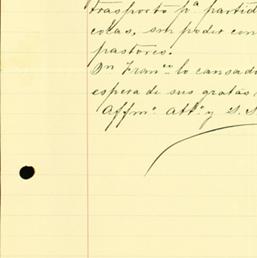 trasporto pª partid
cosas, sin poder con
pastores.
Dn Franco lo cansado
espera de sus gratas
Affmo. Atto. y S. S